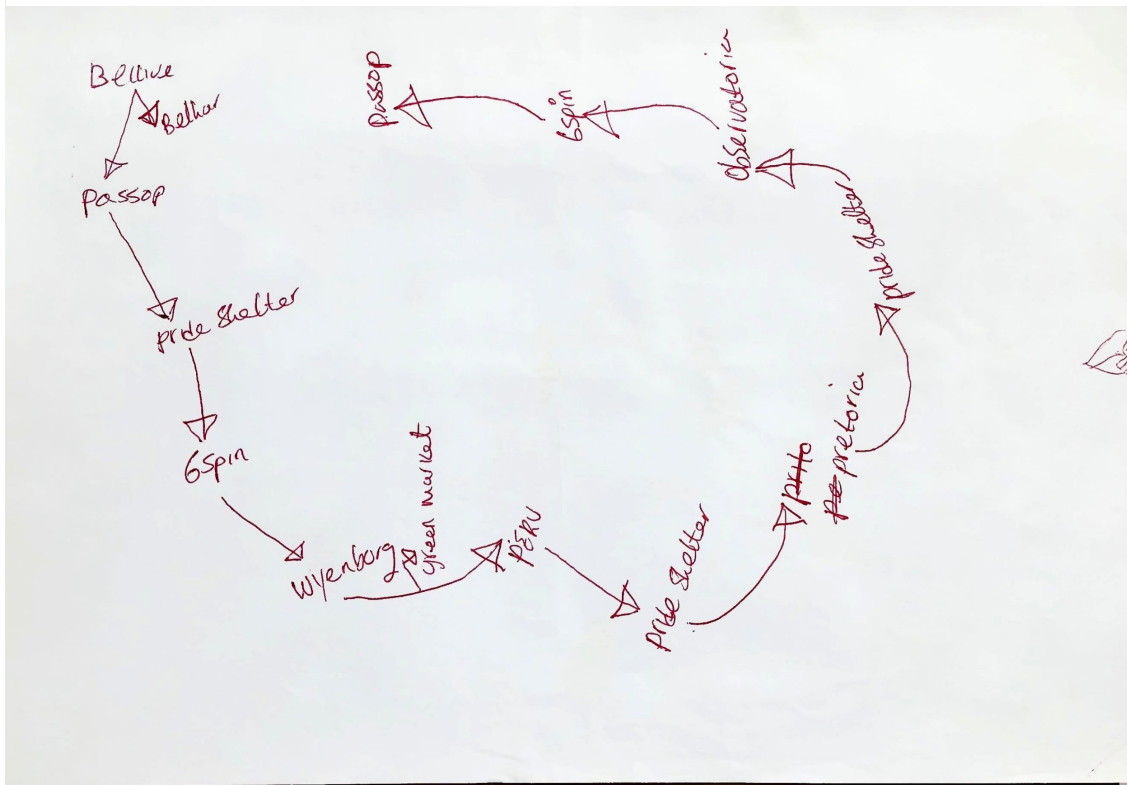 Bellive
Belhar
Passop
pride Shelter
6Spin
Wyenborg
green market
PERU
pride Shelter
prito
pe pretoria
pride Shelter
Observatoria
6Spin
Passop